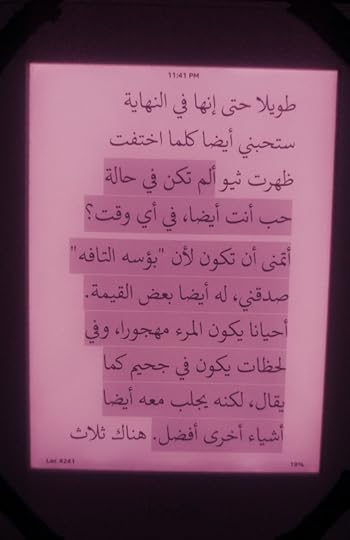 11:41 PM
طويلا حتى إنها في النهاية
ستحبني أيضا كلما اختفت
ظهرت ثيو ألم تكن في حالة
حب أنت أيضا، في أي وقت؟
أتمنى أن تكون لأن "بؤسه التافه"
صدقني، له أيضا بعض القيمة.
أحيانا يكون المرء مهجورا، وفي
لحظات يكون في جحيم كما
يقال، لكنه يجلب معه أيضا
أشياء أخرى أفضل. هناك ثلاث
Loc 4241 19%